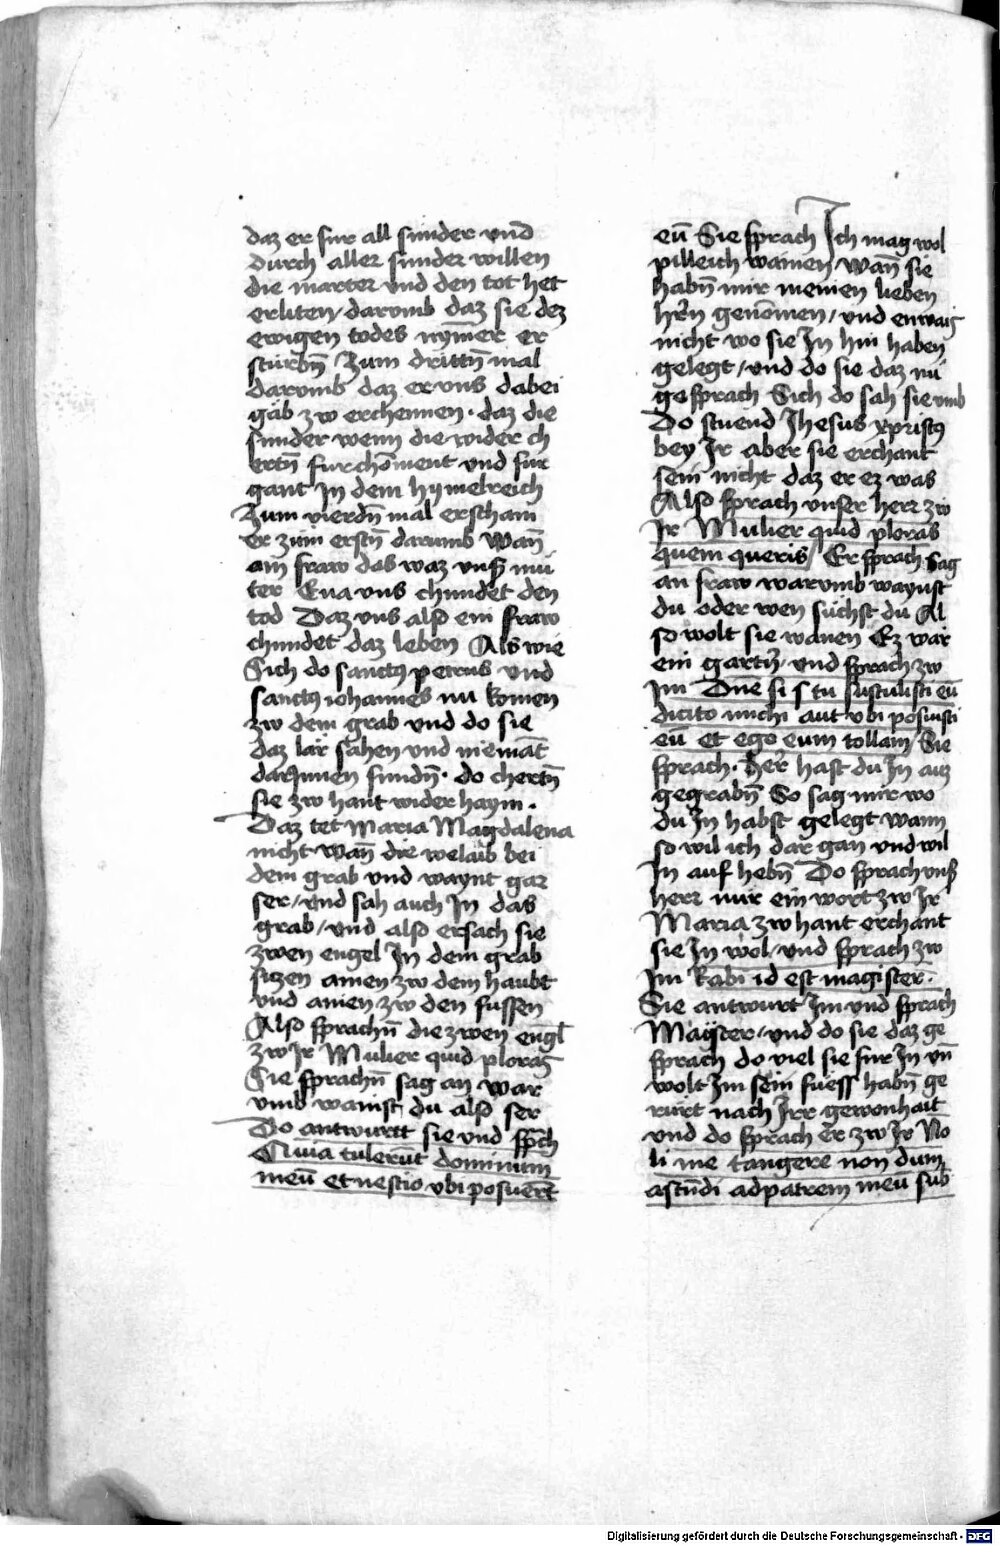 daz er fur all sunder vnd
durch aller sunder willen
die marter vnd den tot het
erliten / darvmb daz sie dez
ewigen todes nymer er
sturbn̄ / Zum drittn̄ mal
darvmb daz er vns dabei
gab zw erchennen · daz die
sunder wenn die wider ch
ertn̄ fur choment vnd fur
gant In dem hymelreich
Zum vierdn̄ mal erscham
er zum erstn̄ darumb Wan̄
ain fraw das waz vnser mu
ter Eua vns chundet den
tod Daz vns also ein fraw
chundet daz leben Als wie
Sich do sanctus petrus vnd
sanctus iohannes nu komen
zw dem grab vnd do sie
daz lär sahen vnd niemāt
darjnnen fundn̄ · do chertn̄
sie zw hant wider haym ·
Daz tet Maria Magdalena
nicht wan̄ die welaib bei
dem grab vnd waynt gar
ser / vnd sah auch In das
grab / vnd also ersach sie
zwen engel In dem grab
sitzen ainen zw dem haubt
vnd ainen zw den fussen
Also sprachn̄ die zwen engl
zw Jr Mulier quid ploras
Sie sprachn̄ sag an war
vmb wainst du also ser
Do antwurtt sie vnd sp̄ch
Quia tulerūt dominum
meū et nescio vbi posuerūt
eū Sie sprach Ich mag wol
pilleich wainen / wan̄ sie
habn̄ mir meinen lieben
her̄n genōmen / vnd enwaiß
nicht wo sie In hin haben
gelegt / vnd do sie daz nu
gesprach Sich do sah sie vmb
Do stuend Jhesus xpristus
bey Jr aber sie erchant
sein nicht daz er ez was
Also sprach vnser herr zw
Jr Mulier quid ploras
quem queris / Er sprach sag
an fraw warvmb waynst
du oder wen suchst du Al
so wolt sie wanen Ez war
ein gartn̄ / vnd sprach zw
Im Dn̄e si s tu sustulisti eū
dicito michi aut vbi posuisti
eū et ego eum tollam Sie
sprach · Her̄ hast du In auz
gegrabn̄ So sag mir wo
du In habst gelegt wann
so wil ich dar gan vnd wil
In auf hebn̄ Do sprach vnser
herr nur ein wort zw Jr
Maria zw hant erchant
sie In wol / vnd sprach zw
Im Rabi id est magister ·
Sie antwurt Im vnd sprach
Mayster / vnd do sie daz ge
sprach do viel sie fur In vn̄
wolt Im sein fuess habn̄ ge
rürt nach Irr gewonhait
vnd do sprach er zw Jr No
li me tangere non dum
ascūdi ad patrem meū sub
Digitalisierung gefördert durch die Deutsche Forschungsgemeinschaft - DFG